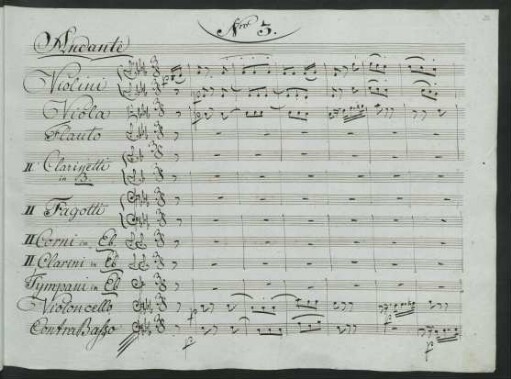 Nro 3.
Andante
Violini
Viola
Flauto
II Clarinetti
in B.
II Fagotti
II Corni in Eb
II Clarini in Eb
Tympani in Eb
Violoncello
ContraBasso